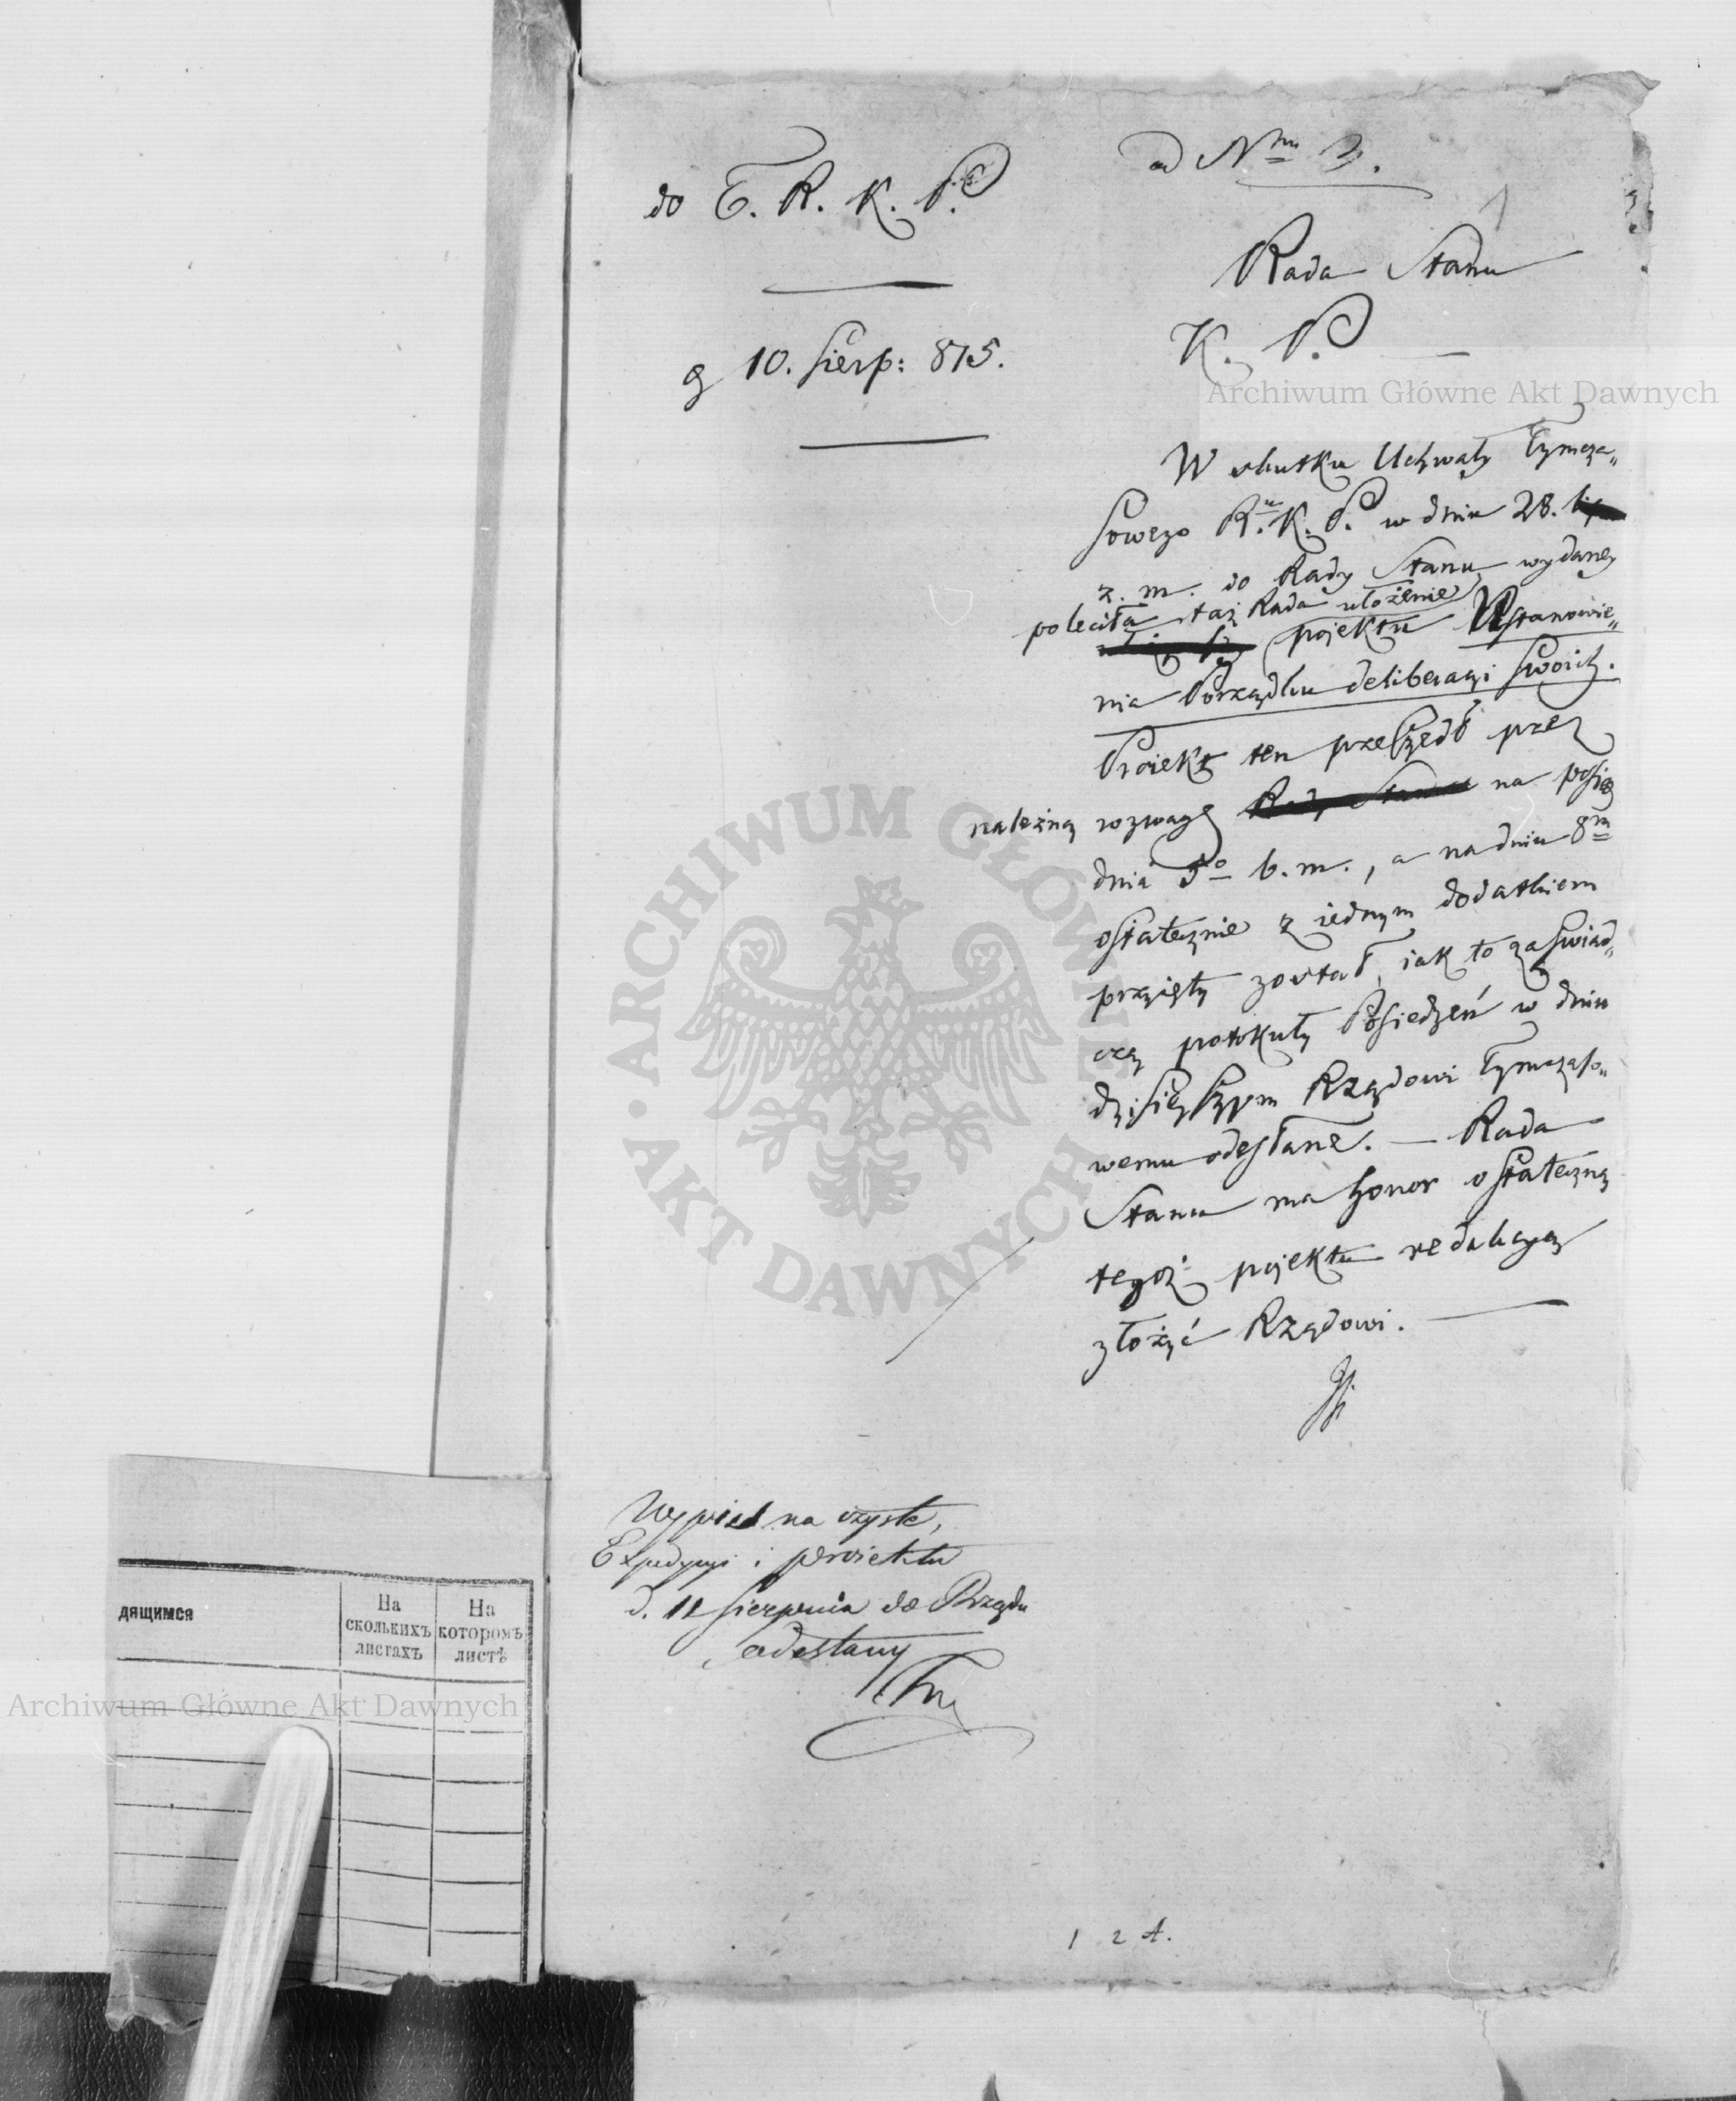 ad N<sup>rm</sup> 3.
do T. R. K. P.
1
Rada Stanu
K. P.
g 10. Sierp: 815.
Archiwum Główne Akt Dawnych
W skutku Uchwały Tymcza„
sowego R.<sup>u</sup> K. P. w dniu 28.
z. m. do Rady Stanu wydaney
poleciła taż Rada ułożenie
pojektu Ustanowie„
nia Porządku deliberacyi swoich.
Proiekt ten przeszedł przez
należną rozwagę Rady Stanu na posie
dnia 5<sup>o</sup> b. m., a na dniu 8<sup>m</sup>
ostatecznie z iednym dodatkiem
przyięty został, iak to zaświad„
czą protokuły Posiedzeń w dniu
dzisieyszym Rządowi Tymczaso„
wemu odesłane. — Rada
Stanu ma honor ostateczną
tegoż pojektu redakcyą
złożyć Rządowi. —
ARCHIWUM GŁÓWNE AKT DAWNYCH
Wypis na czysto,
Expedycyi i proiektu
d. 12 Sierpnia do Rządu
odesłany
дящимся
На
сколькихъ
листахъ
На
которомъ
листѣ
Archiwum Główne Akt Dawnych
1 2 4.